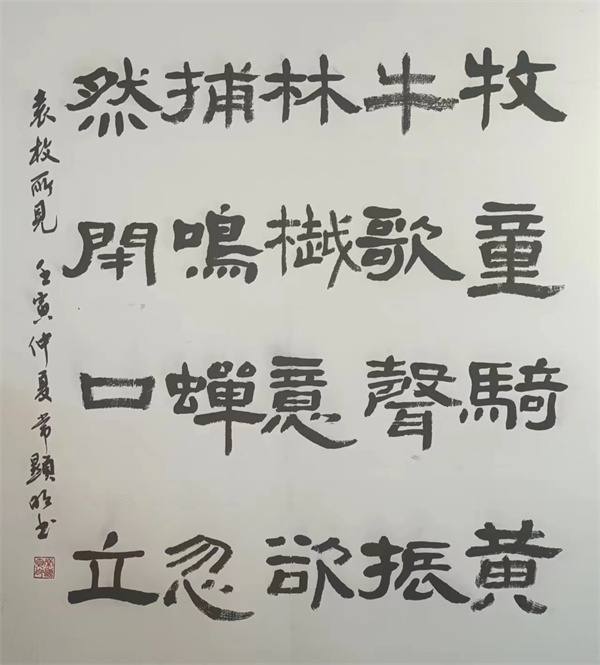 牧童騎黃
牛歌聲振
林樾意欲
捕鳴蟬忽
然閉口立
袁枚所見 壬寅仲夏常顯明书